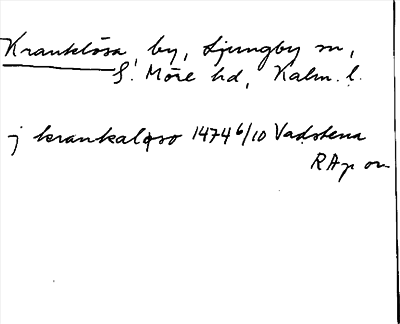 Kranklösa, by, Ljungby sn,
S. Möre hd, Kalm. l.
j krankaløso 1474 6/10 Vadstena
RAp or